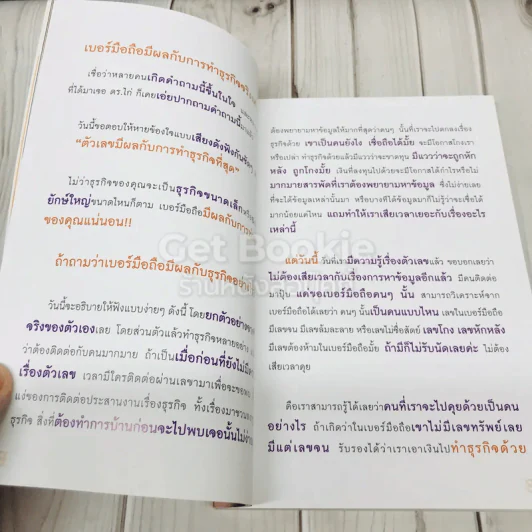 เบอร์มือถือมีผลกับการทำธุรกิจ
เชื่อว่าหลายคนเกิดคำถามนี้ขึ้นในใจ
ที่ได้มาเจอ ดร.ไก่ ก็เคยเอ่ยปากถามคำถามนี้
วันนี้ขอตอบให้หายข้องใจแบบเสียงดังฟังชัด
"ตัวเลขมีผลกับการทำธุรกิจที่สุด"
ไม่ว่าธุรกิจของคุณจะเป็นธุรกิจขนาดเล็ก
ยักษ์ใหญ่ขนาดไหนก็ตาม เบอร์มือถือมีผลกับการ
ของคุณแน่นอน!!
ถ้าถามว่าเบอร์มือถือมีผลกับธุรกิจอย่าง
วันนี้จะอธิบายให้ฟังแบบง่ายๆ ดังนี้ โดยยกตัวอย่าง
จริงของตัวเองเลย โดยส่วนตัวแล้วทำธุรกิจหลายอย่าง
ว่าต้องติดต่อกับคนมากมาย ถ้าเป็นเมื่อก่อนที่ยังไม่มี
เรื่องตัวเลข เวลามีใครติดต่อผ่านเลขามาเพื่อจะขอพบ
แง่ของการติดต่อประสานงานเรื่องธุรกิจ ทั้งเรื่องมาชวน
ธุรกิจ สิ่งที่ต้องทำการบ้านก่อนจะไปพบเจอนั้นไม่ง่าย
ต้องพยายามหาข้อมูลให้มากที่สุดว่าคนๆ นั้นที่เราจะไปตกลงเรื่อง
ธุรกิจด้วย เขาเป็นคนยังไง เชื่อถือได้มั้ย จะมีโอกาสโกงเรา
หรือเปล่า ทำธุรกิจด้วยแล้วมีแววว่าจะขาดทุน มีแววว่าจะถูกหัก
หลัง ถูกโกงมั้ย เงินที่ลงทุนไปด้วยจะมีโอกาสได้กำไรหรือไม่
มากมายสารพัดที่เราต้องพยายามหาข้อมูล ซึ่งไม่ง่ายเลย
ที่จะได้ข้อมูลเหล่านั้นมา หรือบางทีได้ข้อมูลมาก็ไม่รู้ว่าจะเชื่อได้
มากน้อยแค่ไหน แถมทำให้เราเสียเวลาเยอะกับเรื่องอะไร
เหล่านี้
แต่วันนี้ วันที่เรามีความรู้เรื่องตัวเลขแล้ว ขอบอกเลยว่า
ไม่ต้องเสียเวลากับเรื่องการหาข้อมูลอีกแล้ว มีคนติดต่อ
มาปุ๊บ แค่ขอเบอร์มือถือคนๆ นั้น สามารถวิเคราะห์จาก
เบอร์มือถือได้เลยว่า คนนั้นเป็นคนแบบไหน เลขในเบอร์มือถือมี
มีเลขจน มีเลขล้มละลาย หรือเลขไม่ซื่อสัตย์ เลขโกง เลขหักหลัง
มีเลขต้องห้ามในเบอร์มือถือมั้ย ถ้ามีก็ไม่รับนัดเลยค่ะ ไม่ต้อง
เสียเวลาคุย
คือเราสามารถรู้ได้เลยว่าคนที่เราจะไปคุยด้วยเป็นคน
อย่างไร ถ้าเกิดว่าในเบอร์มือถือเขาไม่มีเลขทรัพย์เลย
มีแต่เลขจน รับรองได้ว่าเราเอาเงินไปทำธุรกิจด้วย
Get Bookie
ร้านหนังสือ